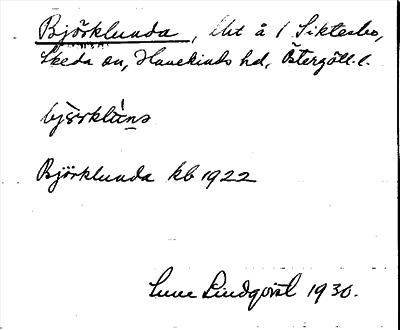 Björklunda, lht å 1 Siktesbo,
Skeda sn, Hanekinds hd, Östergötl. l.
Björklunda kb 1922
Sune Lindqvist 1930.